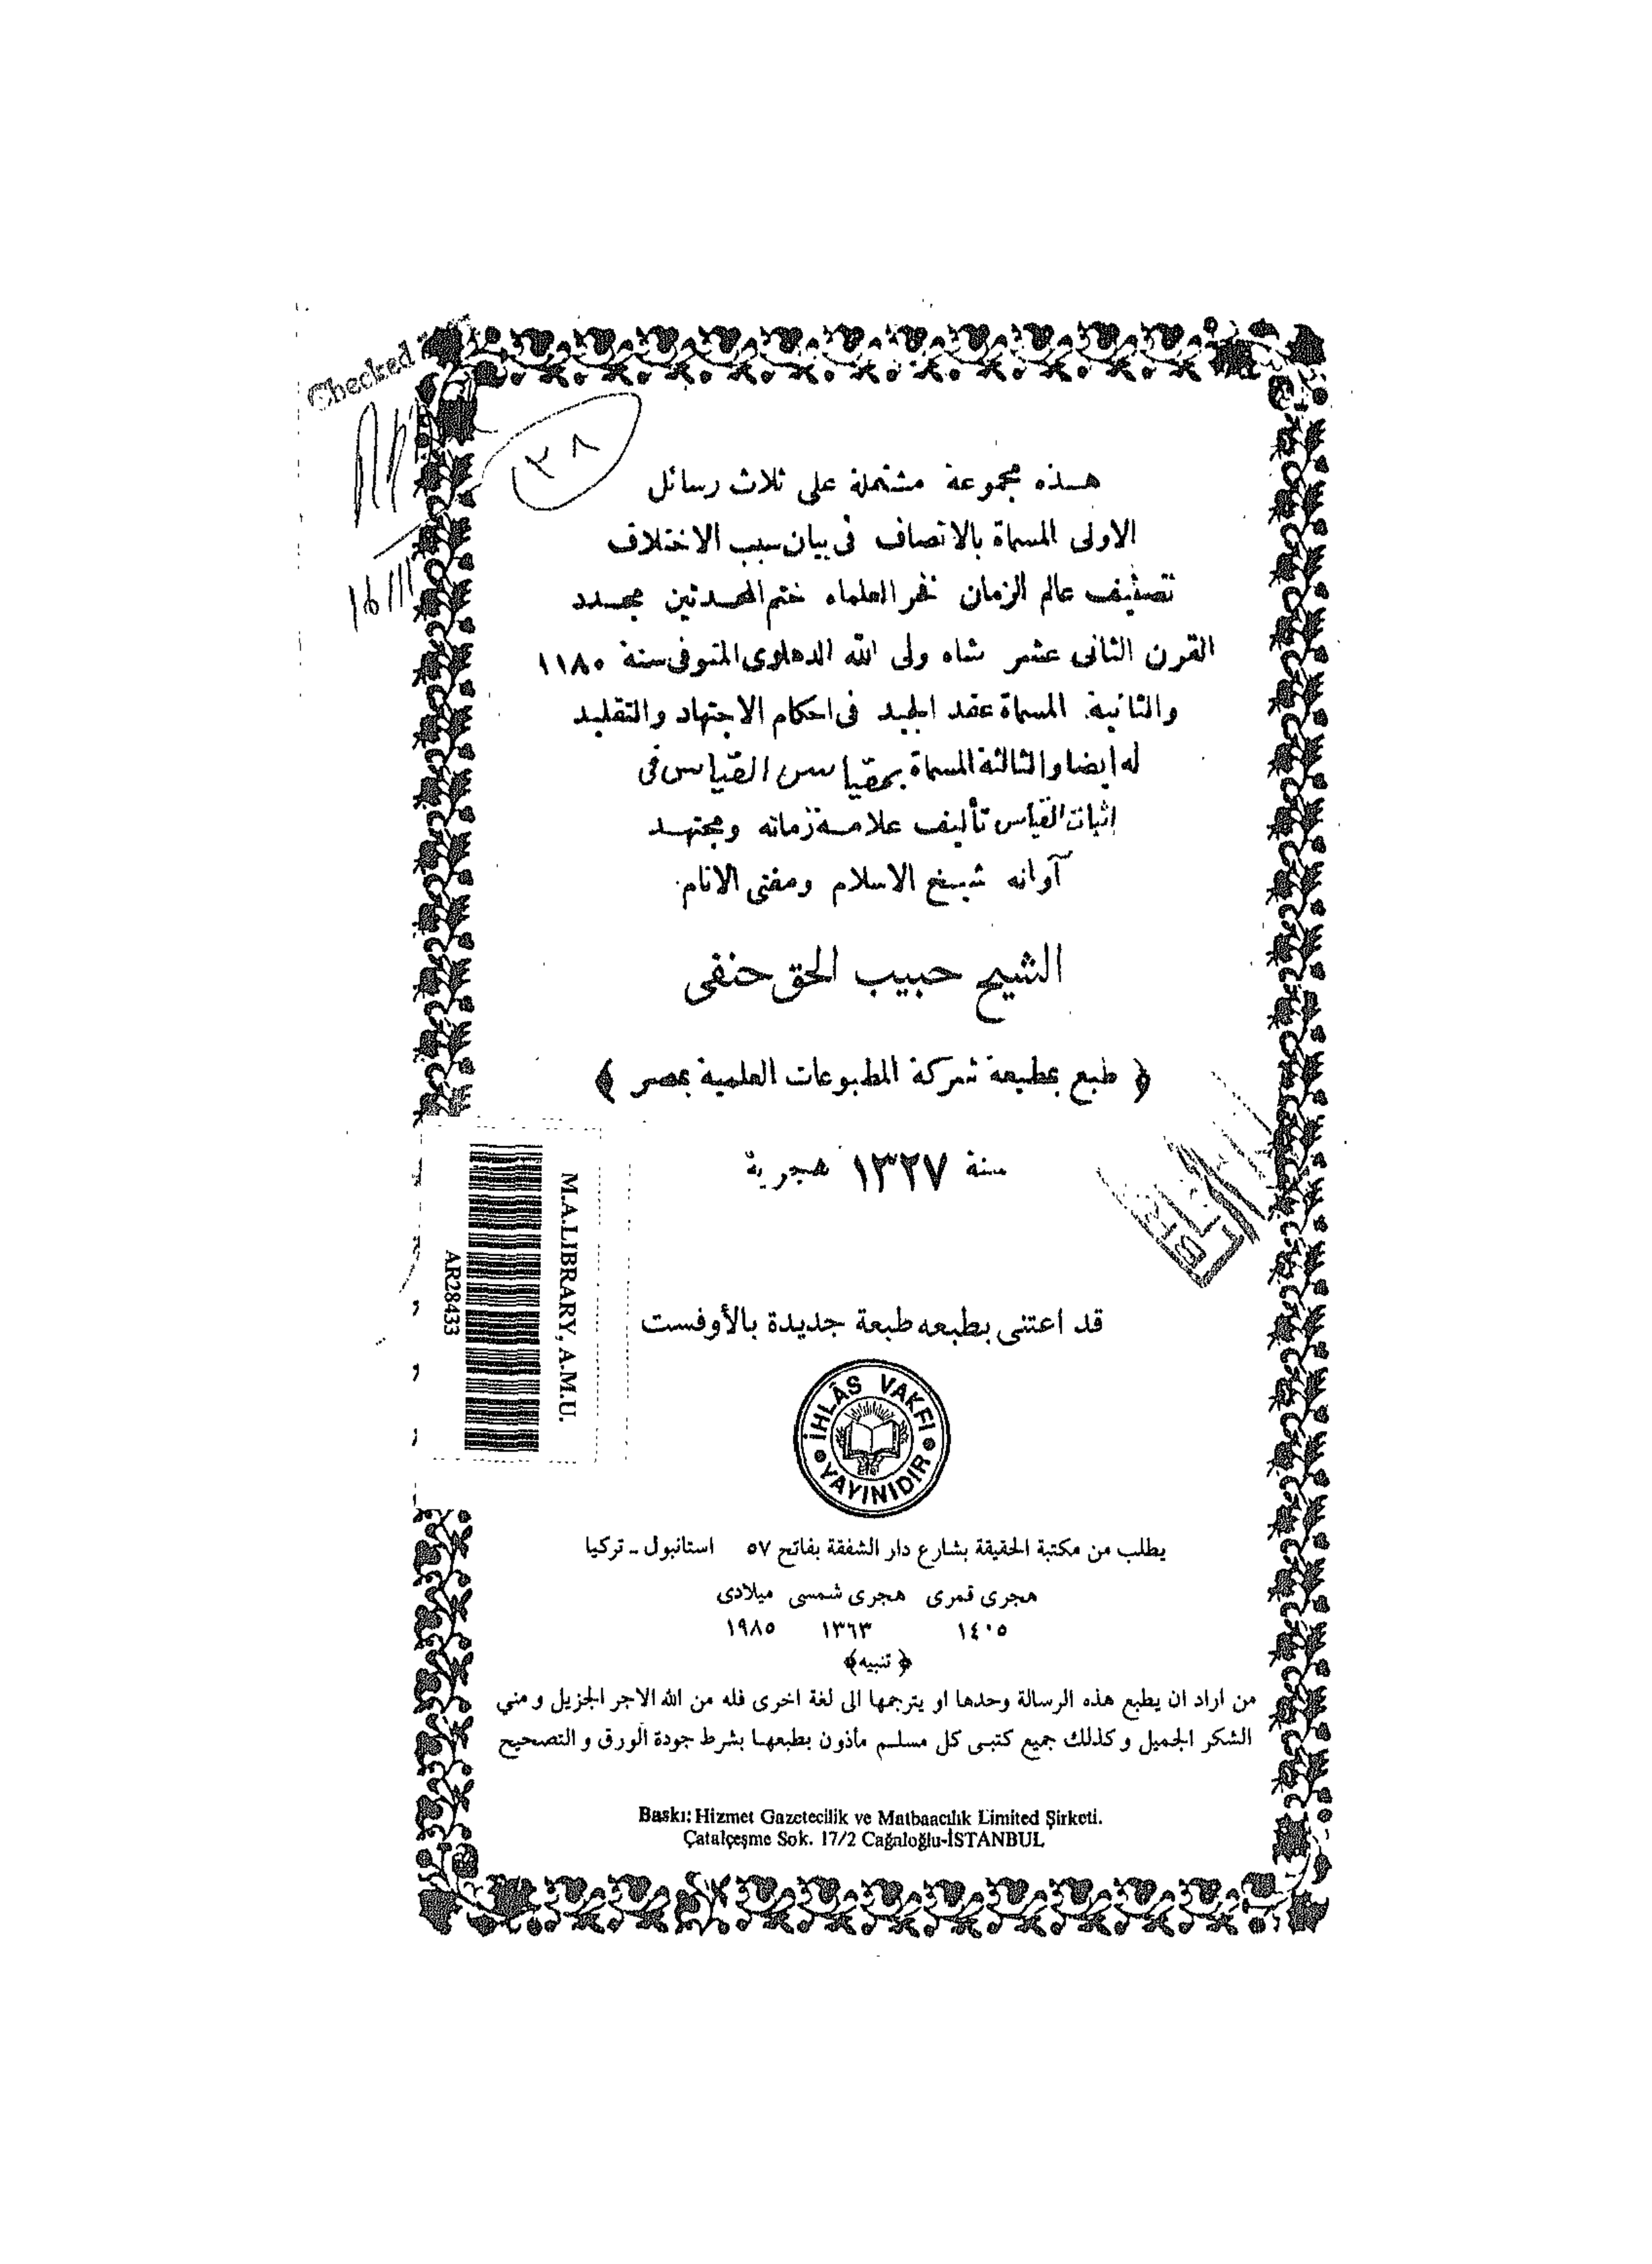 Checked
٢٨
16/11
هذه مجموعة مشتملة على ثلاث رسائل
الاولى المسماة بالانصاف فى بيان سبب الاختلاف
تصنيف عالم الزمان فخر العلماء ختم المحدثين مجدد
القرن الثانى عشر شاه ولى الله الدهلوى المتوفى سنة ١١٨٠
والثانية المسماة عقد الجيد فى احكام الاجتهاد والتقليد
له ايضا والثالثة المسماة بمقياس القياس فى
اثبات القياس تأليف علامة زمانه ومجتهد
آوانه شيخ الاسلام ومفتى الانام
الشيخ حبيب الحق حنفى
﴿ طبع بمطبعة شركة المطبوعات العلمية بمصر ﴾
سنة ١٣٢٧ هجرية
M.A.LIBRARY, A.M.U.
AR28433
قد اعتنى بطبعه طبعة جديدة بالأوفست
İHLÂS VAKFI
YAYINIDIR
يطلب من مكتبة الحقيقة بشارع دار الشفقة بفاتح ٥٧ استانبول - تركيا
هجرى قمرى هجرى شمسى ميلادى
١٤٠٥ ١٣٦٣ ١٩٨٥
﴿ تنبيه ﴾
من اراد ان يطبع هذه الرسالة وحدها او يترجمها الى لغة اخرى فله من الله الاجر الجزيل و مني
الشكر الجميل و كذلك جميع كتبى كل مسلم مأذون بطبعها بشرط جودة الورق و التصحيح
Baskı: Hizmet Gazetecilik ve Matbaacılık Limited Şirketi.
Çatalçeşme Sok. 17/2 Cağaloğlu-İSTANBUL